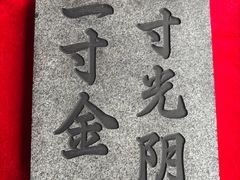 寸光阴
一寸金